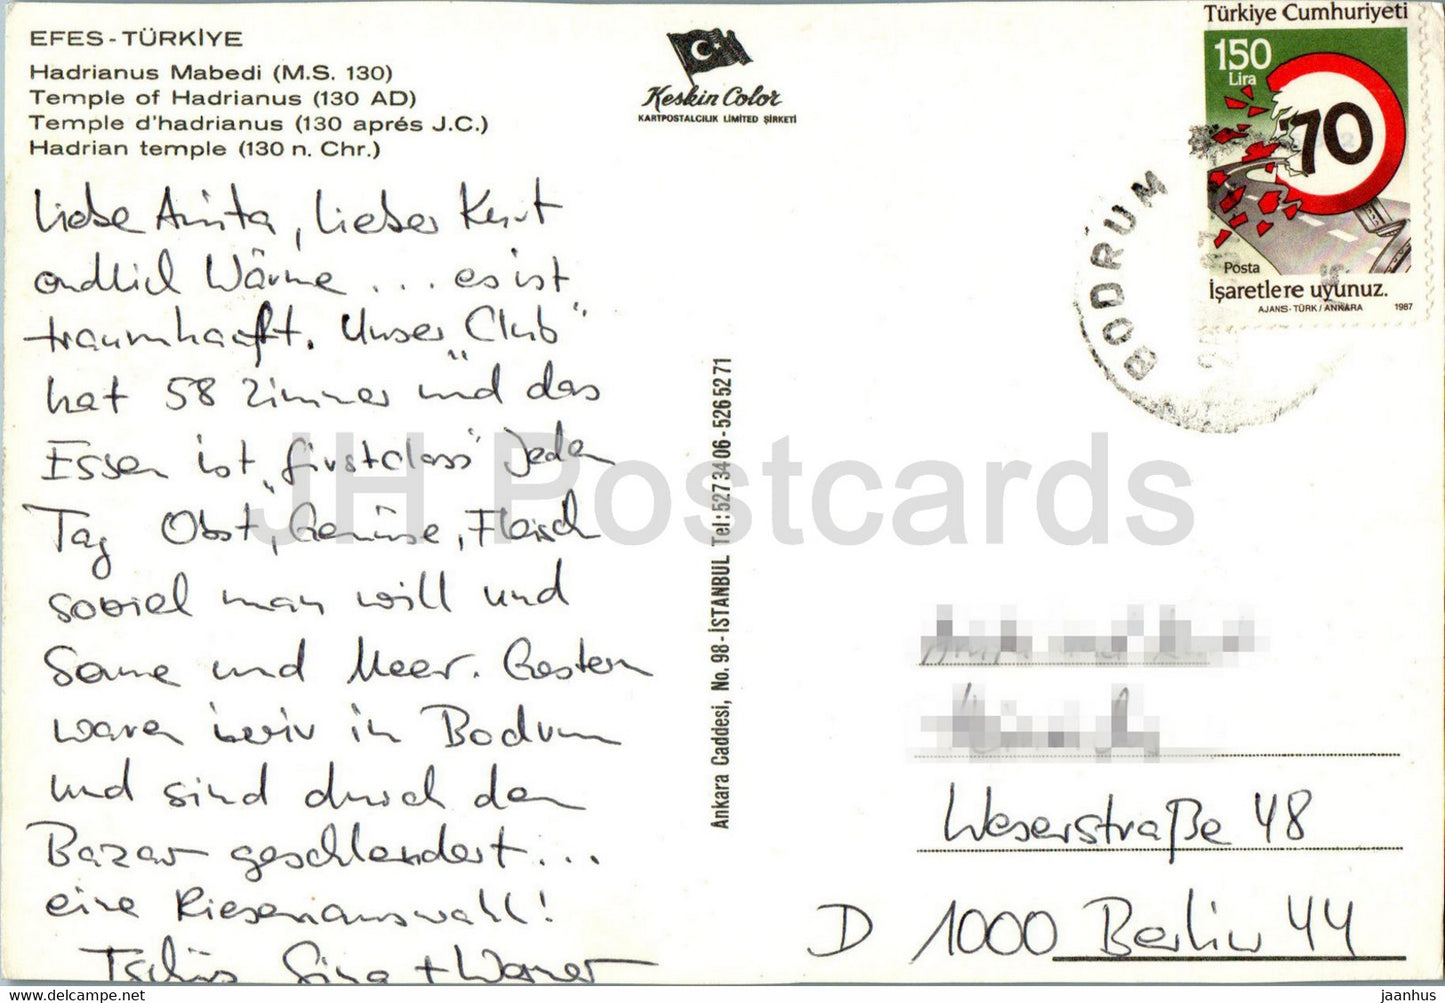 EFES - TÜRKİYE
Hadrianus Mabedi (M.S. 130)
Temple of Hadrianus (130 AD)
Temple d'hadrianus (130 aprés J.C.)
Hadrian temple (130 n. Chr.)
Liebe Anita, lieber Kurt
endlich Wärme ... es ist
traumhaft. Unser „Club"
hat 58 Zimmer und das
Essen ist „firstclass" Jeden
Tag Obst, Gemüse, Fleisch
soviel man will und
Sonne und Meer. Gestern
waren wir in Bodrum
und sind durch den
Bazar geschlendert ...
eine Riesenauswahl!
Tschüs Sina + Werner
Keskin Color
KARTPOSTALCILIK LIMITED ŞİRKETİ
Ankara Caddesi, No. 98 - İSTANBUL Tel: 527 34 06 - 526 52 71
Türkiye Cumhuriyeti
150
Lira
70
Posta
İşaretlere uyunuz.
AJANS - TÜRK / ANKARA 1987
BODRUM
Weserstraße 48
D 1000 Berlin 44
JH Postcards
jaanhus @ delcampe.net